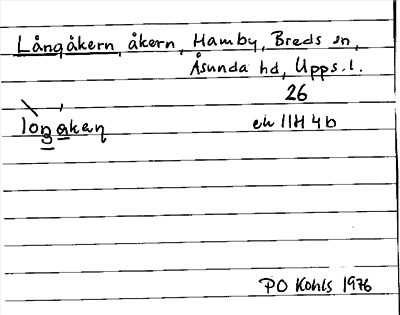 Långåkern, åkern, Hamby, Breds sn,
Åsunda hd, Upps. l.
26
longakan
ek 11H 4b
PO Kohls 1976